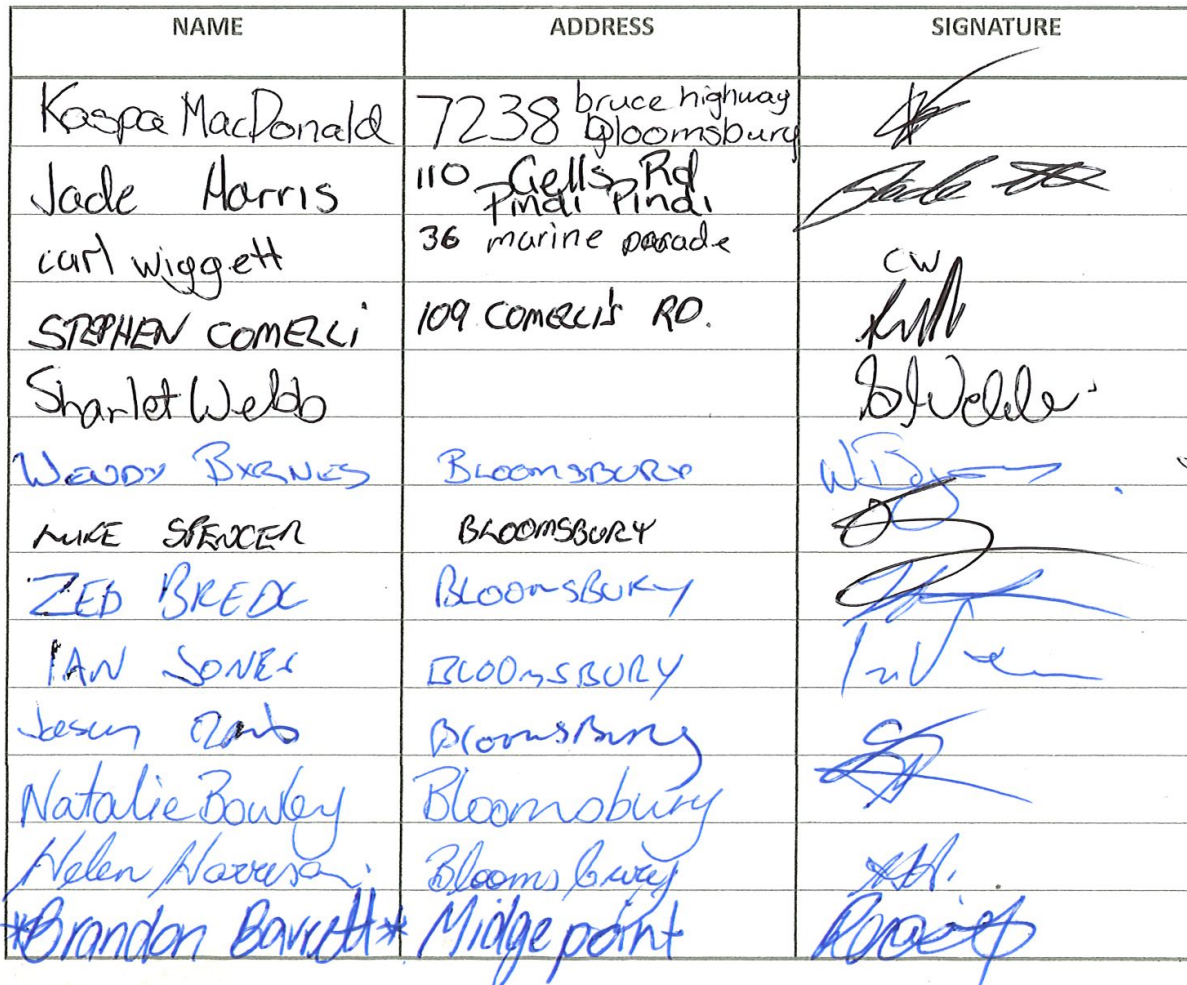 NAME ADDRESS SIGNATURE
Kaspa MacDonald 7238 bruce highway bloomsbury
Jade Harris 110 Gells Rd Pindi Pindi Jade
carl wiggett 36 marine parade CW
STEPHEN COMELLI 109 COMELLI'S RD.
Sharlet Webb
WENDY BYRNES BLOOMSBURY
MIKE SPENCER BLOOMSBURY
ZED BLOOMSBURY
IAN JONES BLOOMSBURY
Bloomsbury
Natalie Bowley Bloomsbury
Helen Harrison. Bloomsbury
*Brandon Barrett* Midge point